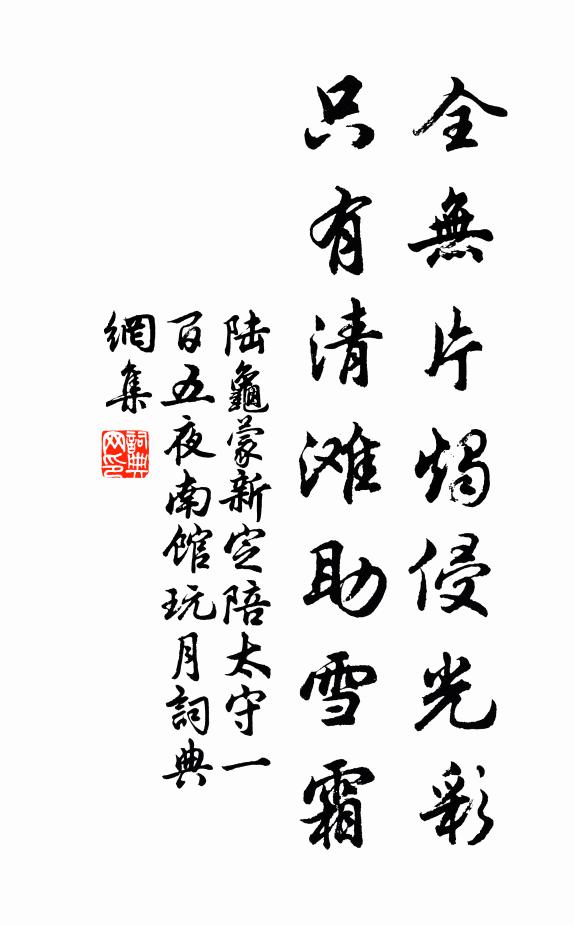 全無片燭侵光彩
只有清滩助雪霜
陆龜蒙新定陪太守一
百五夜南馆玩月詞典
網集
詞典
网印